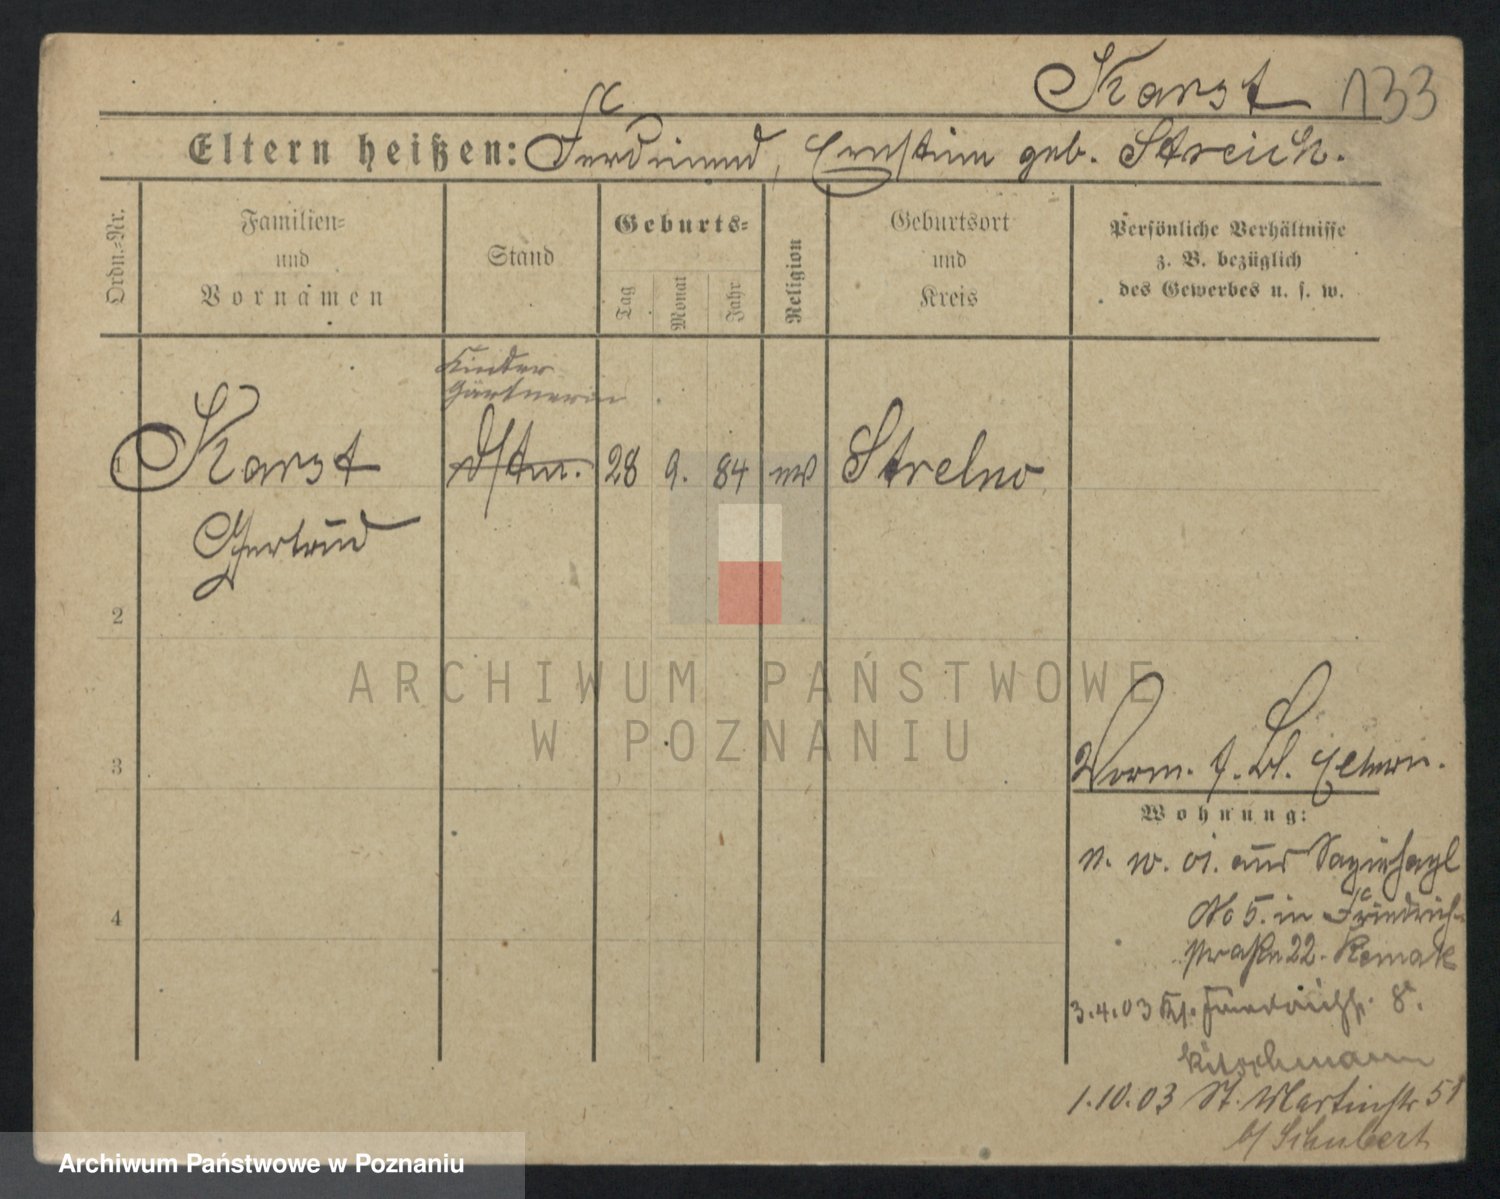 Karst 133
Eltern heißen: Ferdinand, Ernstine geb. Streich.
Ordn.-Nr.
Familien-
und
Vornamen
Stand
Geburts-
Tag
Monat
Jahr
Religion
Geburtsort
und
Kreis
Persönliche Verhältnisse
z. B. bezüglich
des Gewerbes u. s. w.
Kinder
Gärtnerin
1 Karst 28 9. 84 ev Strelno
Gertrud
2
3
4
ARCHIWUM PAŃSTWOWE
W POZNANIU
Vorm. f. Bl. Eltern.
Wohnung:
No 5. in Friedrich-
straße 22. Remak
3.4.03 Friedrichstr. 8
1.10.03 St. Martinstr 51
b/ Schubert
Archiwum Państwowe w Poznaniu